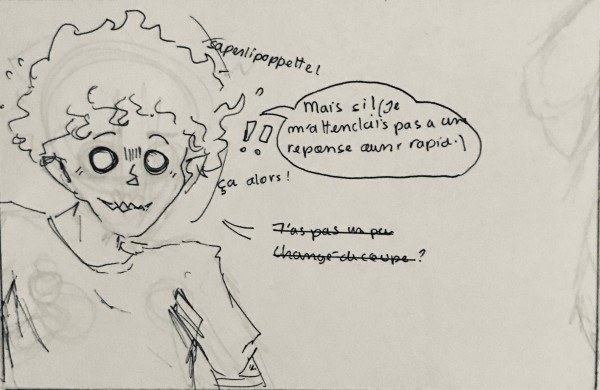 saperlipoppette!
!!
Mais si! (Je
m'attendais pas a une
reponse aussi rapid.)
ça alors!
T'as pas un peu
changé de coupe ?